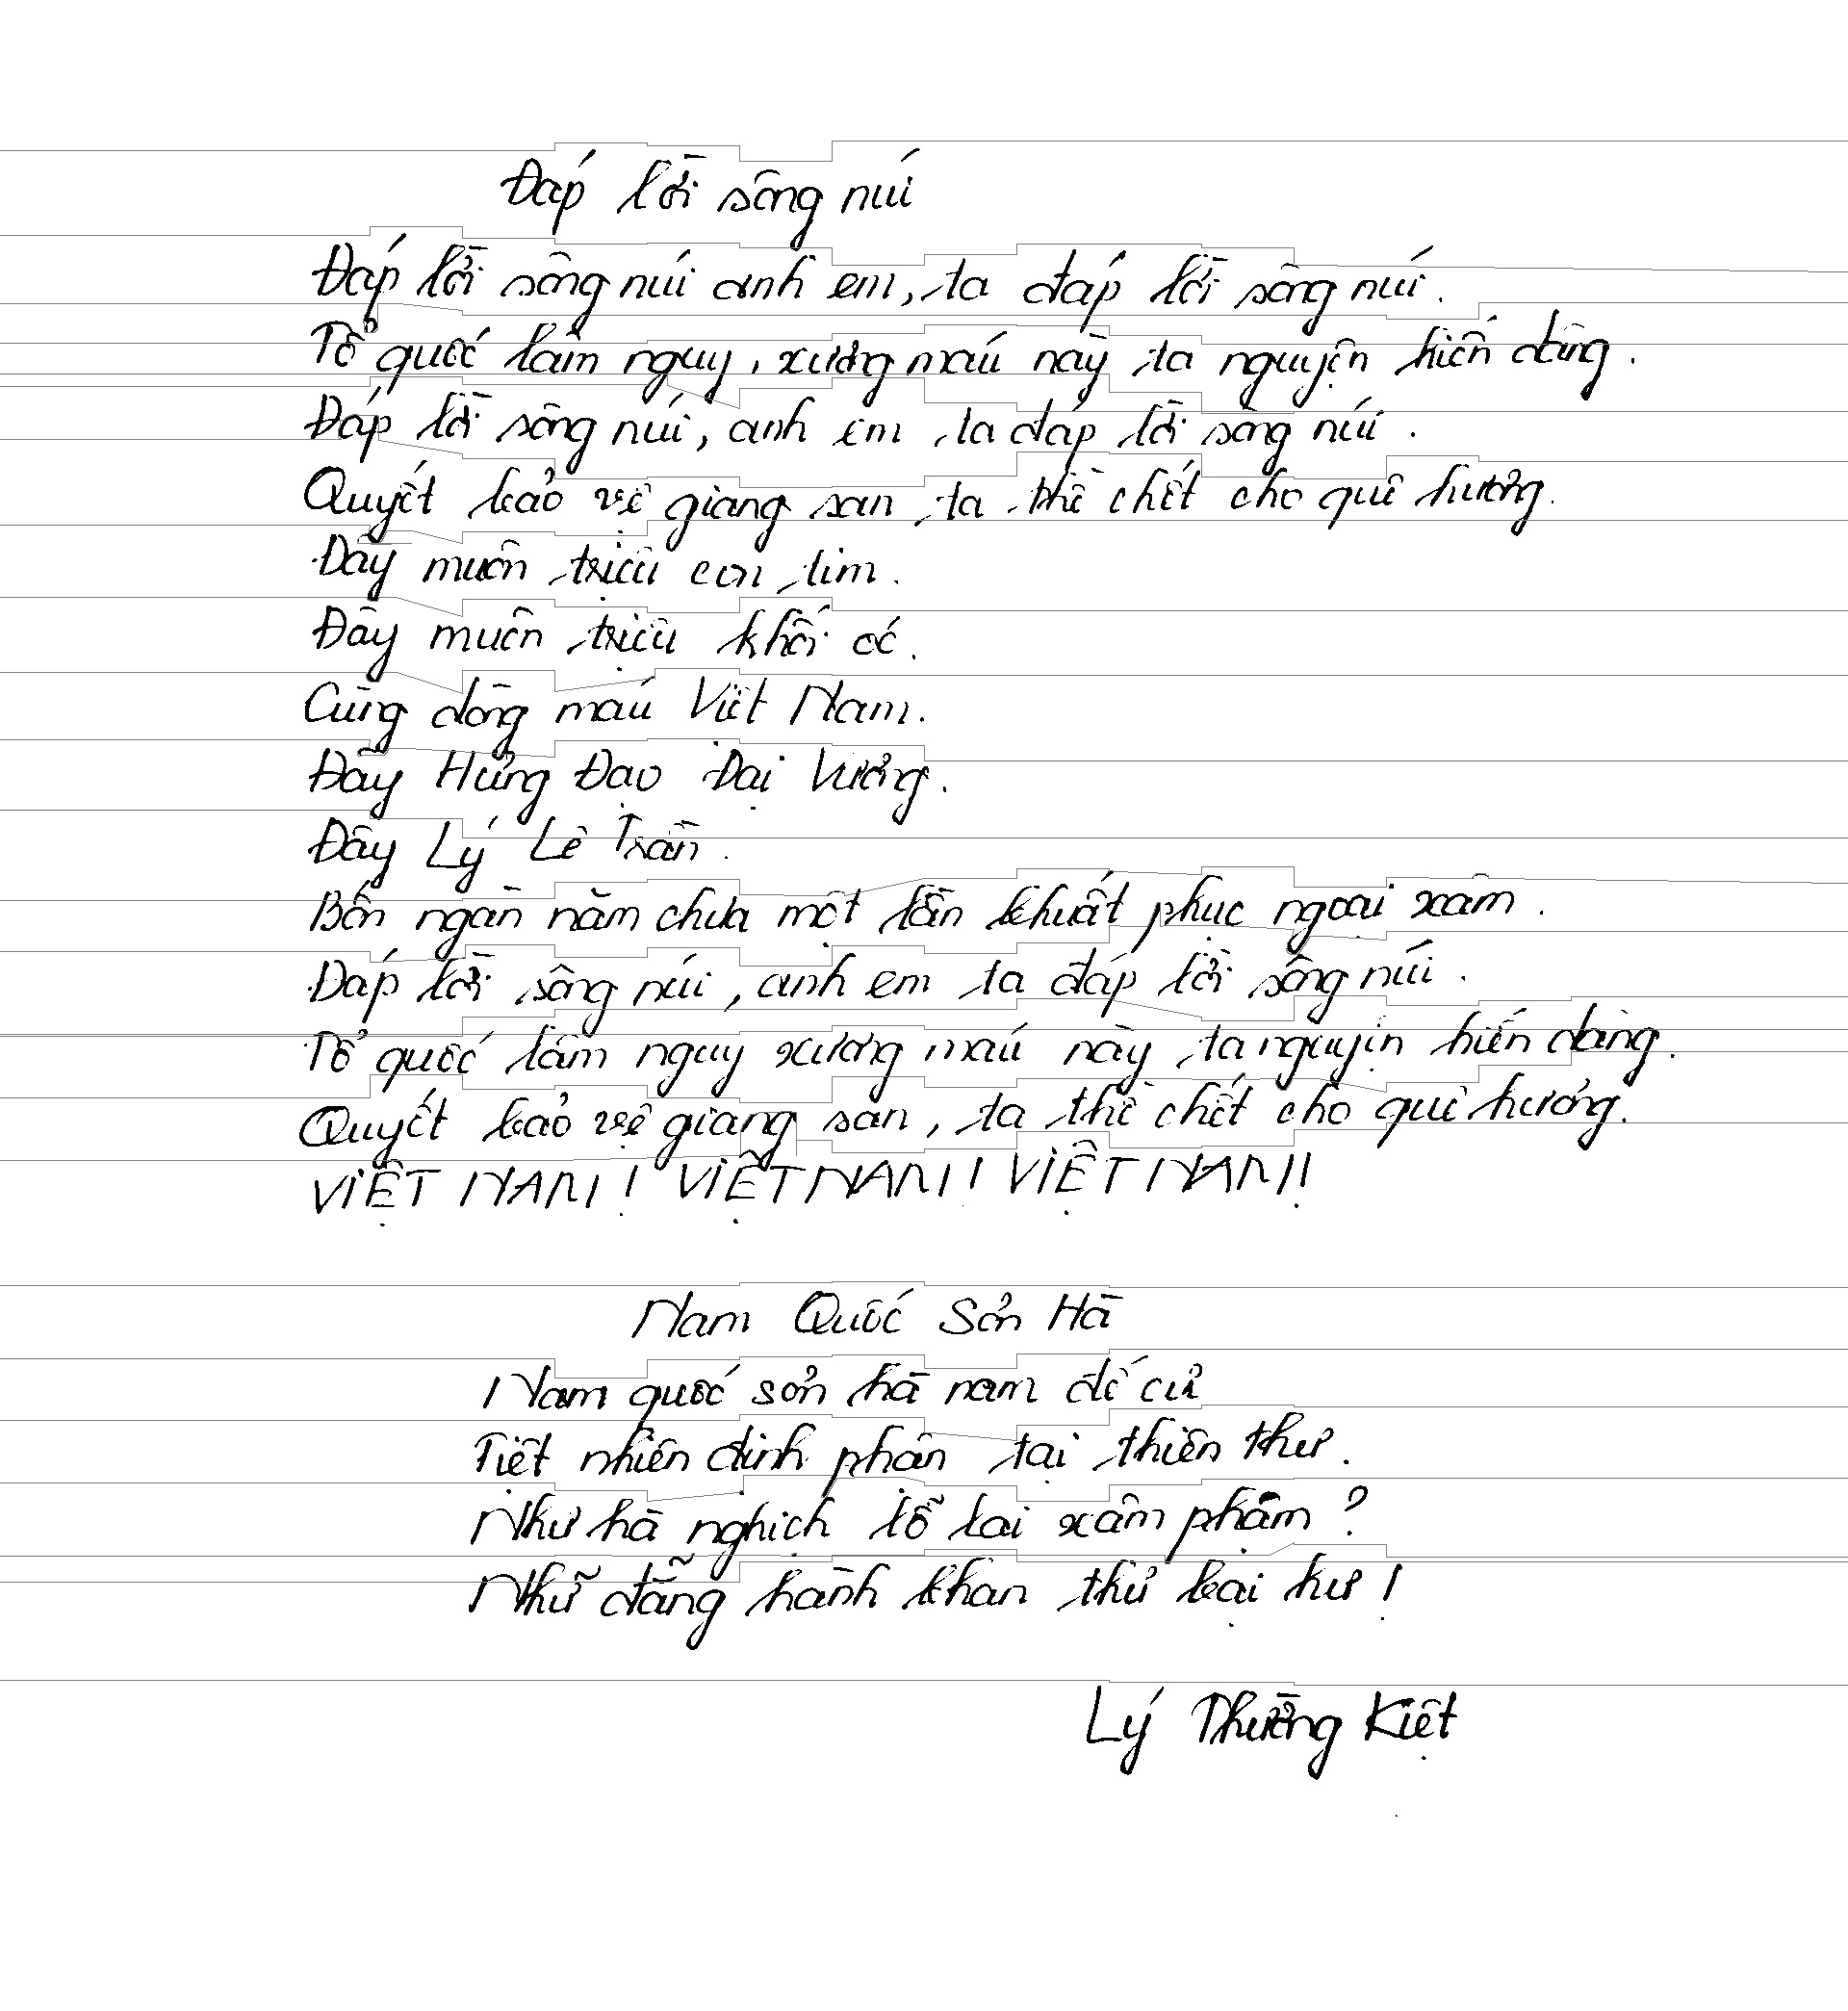 Đáp lời sông núi
Đáp lời sông núi anh em, ta đáp lời sông núi.
Tổ quốc lâm nguy, xương máu này ta nguyện hiến dâng.
Đáp lời sông núi, anh em ta đáp lời sông núi.
Quyết bảo vệ giang san, ta thề chết cho quê hương.
Đây muôn triệu con tim.
Đây muôn triệu khối óc.
Cùng dòng máu Việt Nam.
Đây Hưng Đạo Đại Vương.
Đây Lý Lê Trần.
Bốn ngàn năm chưa một lần khuất phục ngoại xâm.
Đáp lời sông núi, anh em ta đáp lời sông núi.
Tổ quốc lâm nguy xương máu này ta nguyện hiến dâng.
Quyết bảo vệ giang san, ta thề chết cho quê hương.
VIỆT NAM! VIỆT NAM! VIỆT NAM!
Nam Quốc Sơn Hà
Nam quốc sơn hà nam đế cư
Tiệt nhiên định phận tại thiên thư.
Như hà nghịch lỗ lai xâm phạm?
Nhữ đẳng hành khan thủ bại hư!
Lý Thường Kiệt